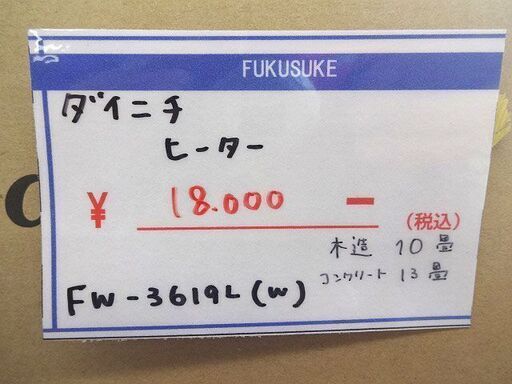 FUKUSUKE
ダイニチ
ヒーター
¥ 18.000 ー
(税込)
木造 10畳
コンクリート 13畳
FW-3619L(W)